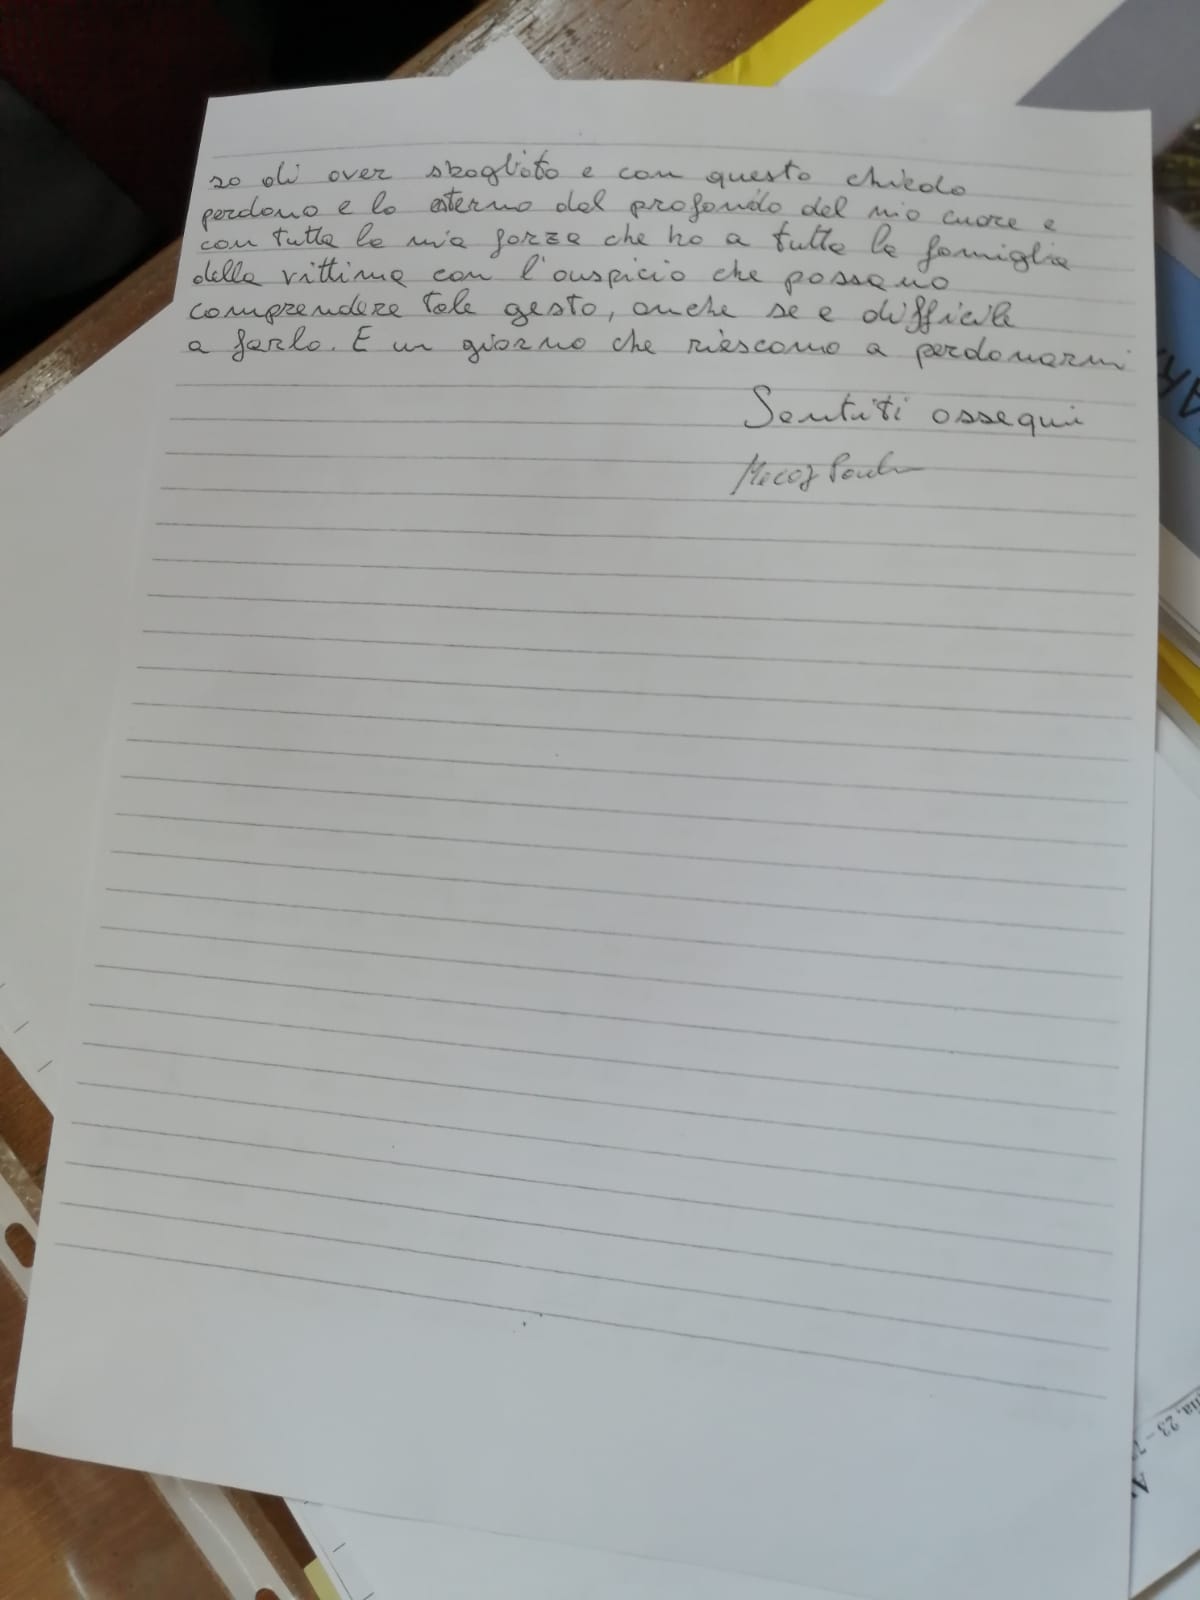 so di aver sbagliato e con questo chiedo
perdono e lo esterno dal profondo del mio cuore e
con tutta la mia forza che ho a tutta la famiglia
della vittima con l'auspicio che possano
comprendere tale gesto, anche se e difficile
a farlo. E un giorno che riescono a perdonarmi
Sentiti ossequi
23 –